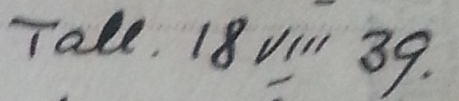 Tall. 18 VIII 39.